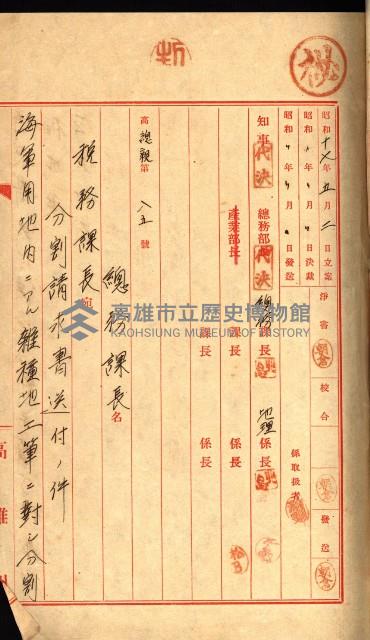 昭和十七年五月二日立案 淨書 校合 發送
昭和 年 月 日決裁
昭和 年 月 日發送 係取扱者
知事 代決 總務部長 代決 總務課長 地理係長
產業部長 課長 係長
高總親第八五號
總務課長名
稅務課長宛
分割請求書送付ノ件
海軍用地內ニアル雜種地二筆ニ對シ分割
高雄州
高雄市立歷史博物館
KAOHSIUNG MUSEUM OF HISTORY